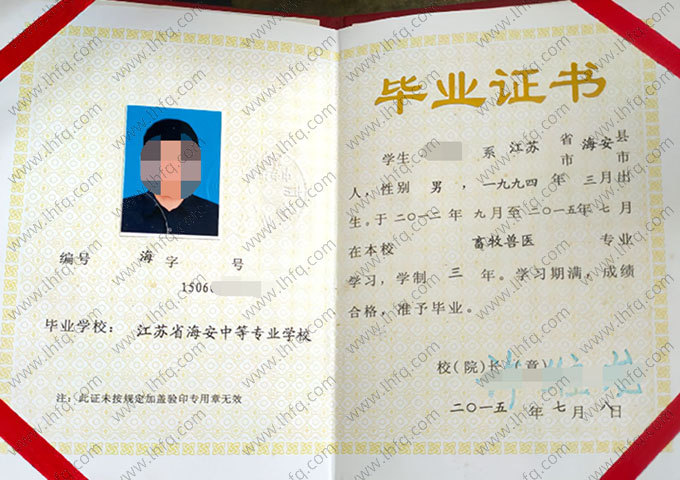 编号 海字 号
1506
毕业学校： 江苏省海安中等专业学校
注：此证未按规定加盖验印专用章无效
毕业证书
学生 系 江苏 省市 海安 县市
人，性别 男 ，一九九四 年 三月出
生。于二〇一二年 九月至二〇一五年七月
在本校 畜牧兽医 专业
学习，学制 三 年。学习期满，成绩
合格，准予毕业。
校(院)长 (章)
二〇一五 年 七 月 八 日
www.lhfq.com